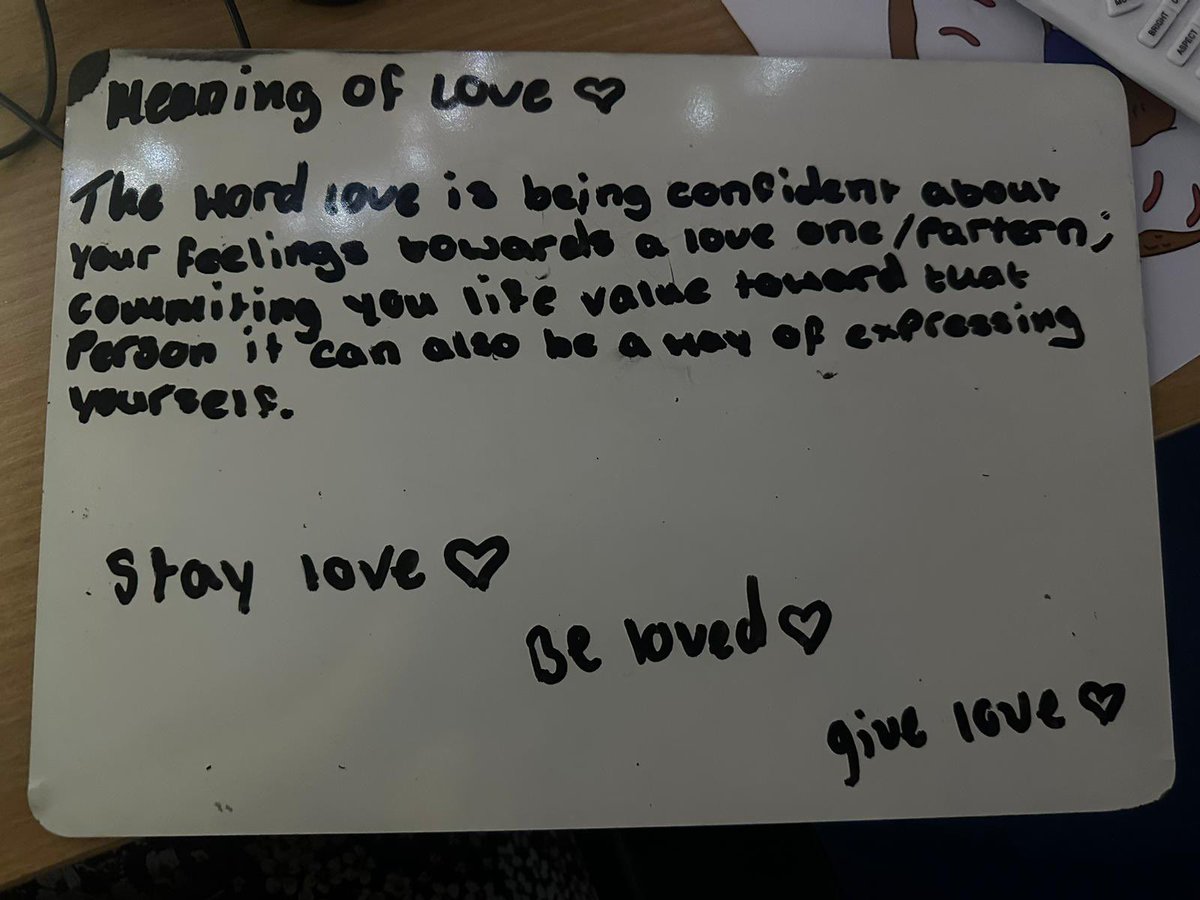 Meaning of Love ♡
The word love is being confident about
your feelings towards a love one/Partern;
commiting you life value toward that
Person it can also be a way of expressing
yourself.
Stay love ♡
Be loved ♡
give love ♡
BRIGHT
ASPECT